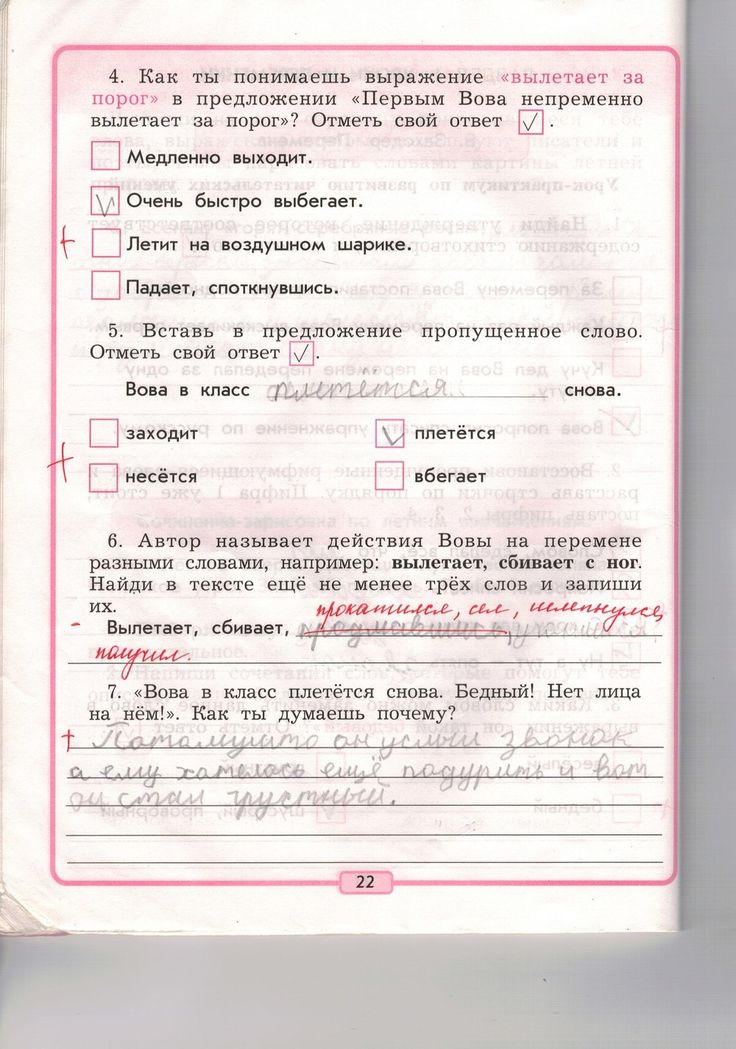 4. Как ты понимаешь выражение «вылетает за
порог» в предложении «Первым Вова непременно
вылетает за порог»? Отметь свой ответ ✓.
Медленно выходит.
✓ Очень быстро выбегает.
+ Летит на воздушном шарике.
Падает, споткнувшись.
5. Вставь в предложение пропущенное слово.
Отметь свой ответ ✓.
Вова в класс плетётся снова.
заходит ✓ плетётся
+ несётся вбегает
6. Автор называет действия Вовы на перемене
разными словами, например: вылетает, сбивает с ног.
Найди в тексте ещё не менее трёх слов и запиши
их.
прокатился, сел,
- Вылетает, сбивает,
получил.
7. «Вова в класс плетётся снова. Бедный! Нет лица
на нём!». Как ты думаешь почему?
+ Патамушто он услыл звонок
а ему хателось ещё падурить и вот
он стал грустный.
22